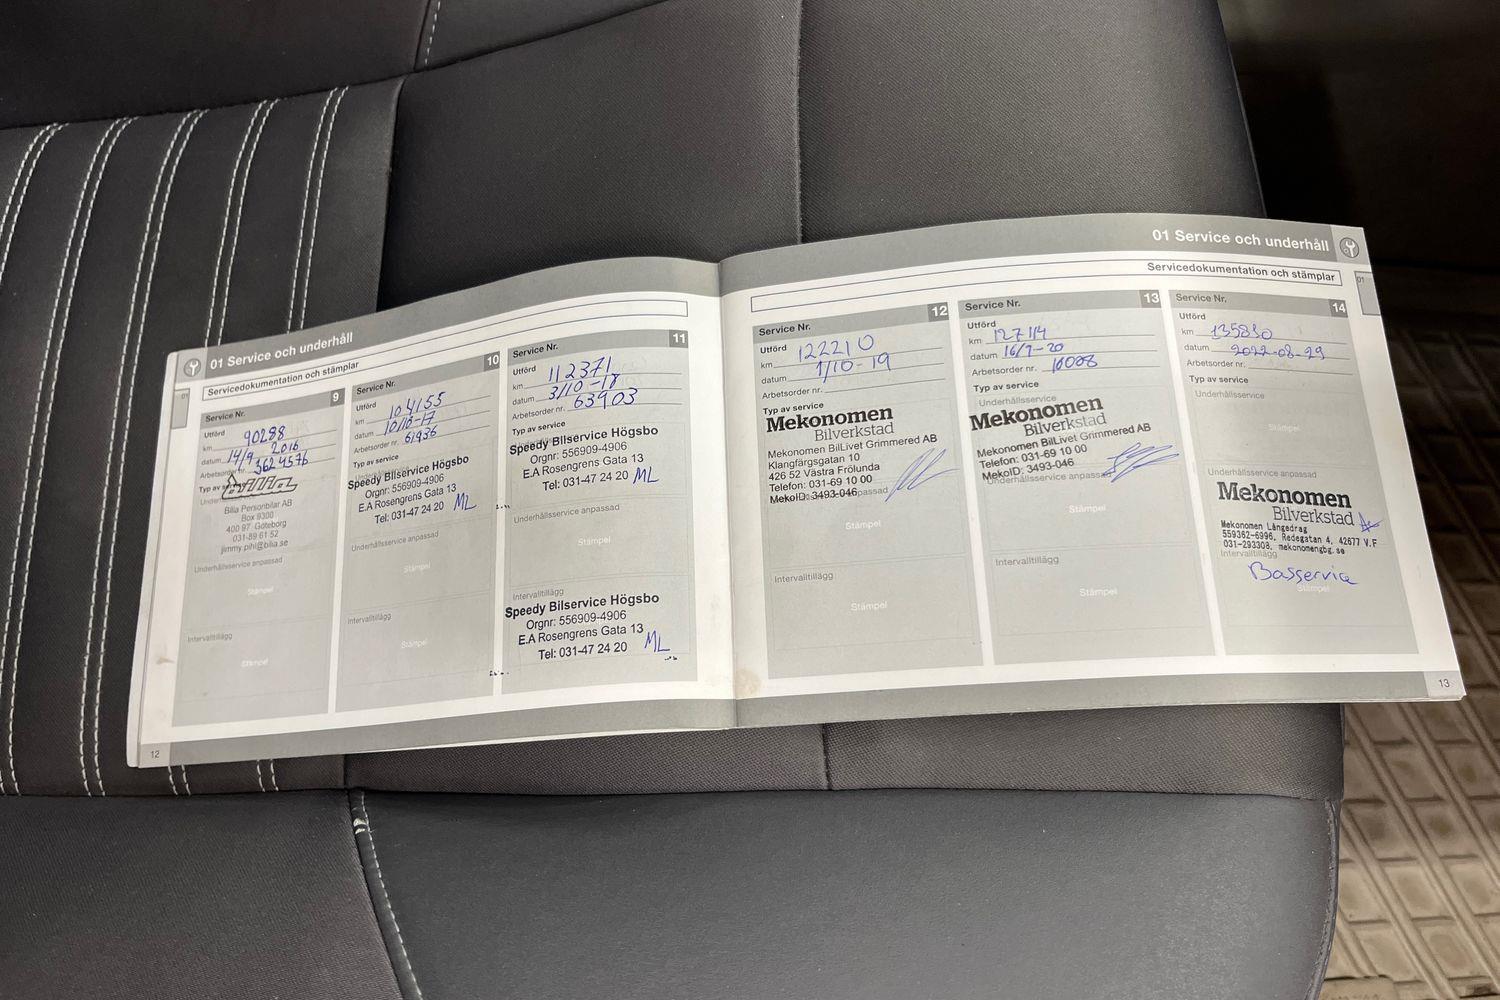 01 Service och underhåll
Servicedokumentation och stämplar
01
Service Nr. 9
Utförd
km 90288
datum 14/9 2016
Arbetsorder nr. 3624576
Typ av
bilia
Bilia Personbilar AB
Box 9300
400 97 Göteborg
031-89 61 52
jimmy.pihl@bilia.se
Underhållsservice anpassad
Stämpel
Intervalltillägg
Stämpel
12
Service Nr. 10
Utförd
km 104155
datum 10/10-17
Arbetsorder nr. 61936
Typ av service
Speedy Bilservice Högsbo
Orgnr: 556909-4906
E.A Rosengrens Gata 13
Tel: 031-47 24 20 ML
Underhållsservice anpassad
Stämpel
Intervalltillägg
Stämpel
Service Nr. 11
Utförd
km 112371
datum 3/10-18
Arbetsorder nr. 63903
Typ av service
Speedy Bilservice Högsbo
Orgnr: 556909-4906
E.A Rosengrens Gata 13
Tel: 031-47 24 20 ML
Underhållsservice anpassad
Stämpel
Intervalltillägg
Speedy Bilservice Högsbo
Orgnr: 556909-4906
E.A Rosengrens Gata 13
Tel: 031-47 24 20 ML
01 Service och underhåll
Servicedokumentation och stämplar
01
Service Nr. 12
Utförd
km 122210
datum 1/10-19
Arbetsorder nr.
Typ av service
Mekonomen
Bilverkstad
Mekonomen BilLivet Grimmered AB
Klangfärgsgatan 10
426 52 Västra Frölunda
Telefon: 031-69 10 00
MekoID: 3493-046
Stämpel
Intervalltillägg
Stämpel
Service Nr. 13
Utförd
km 127114
datum 16/7-20
Arbetsorder nr. 10008
Typ av service
Underhållsservice
Mekonomen
Bilverkstad
Mekonomen BilLivet Grimmered AB
Telefon: 031-69 10 00
MekoID: 3493-046
Underhållsservice anpassad
Stämpel
Intervalltillägg
Stämpel
Service Nr. 14
Utförd
km 135830
datum 2022-08-29
Arbetsorder nr.
Typ av service
Underhållsservice
Stämpel
Underhållsservice anpassad
Mekonomen
Bilverkstad
Mekonomen Långedrag
559362-6996, Redegatan 4, 42677 V.F
031-293308, mekonomengbg.se
Intervalltillägg
Basservice
Stämpel
13